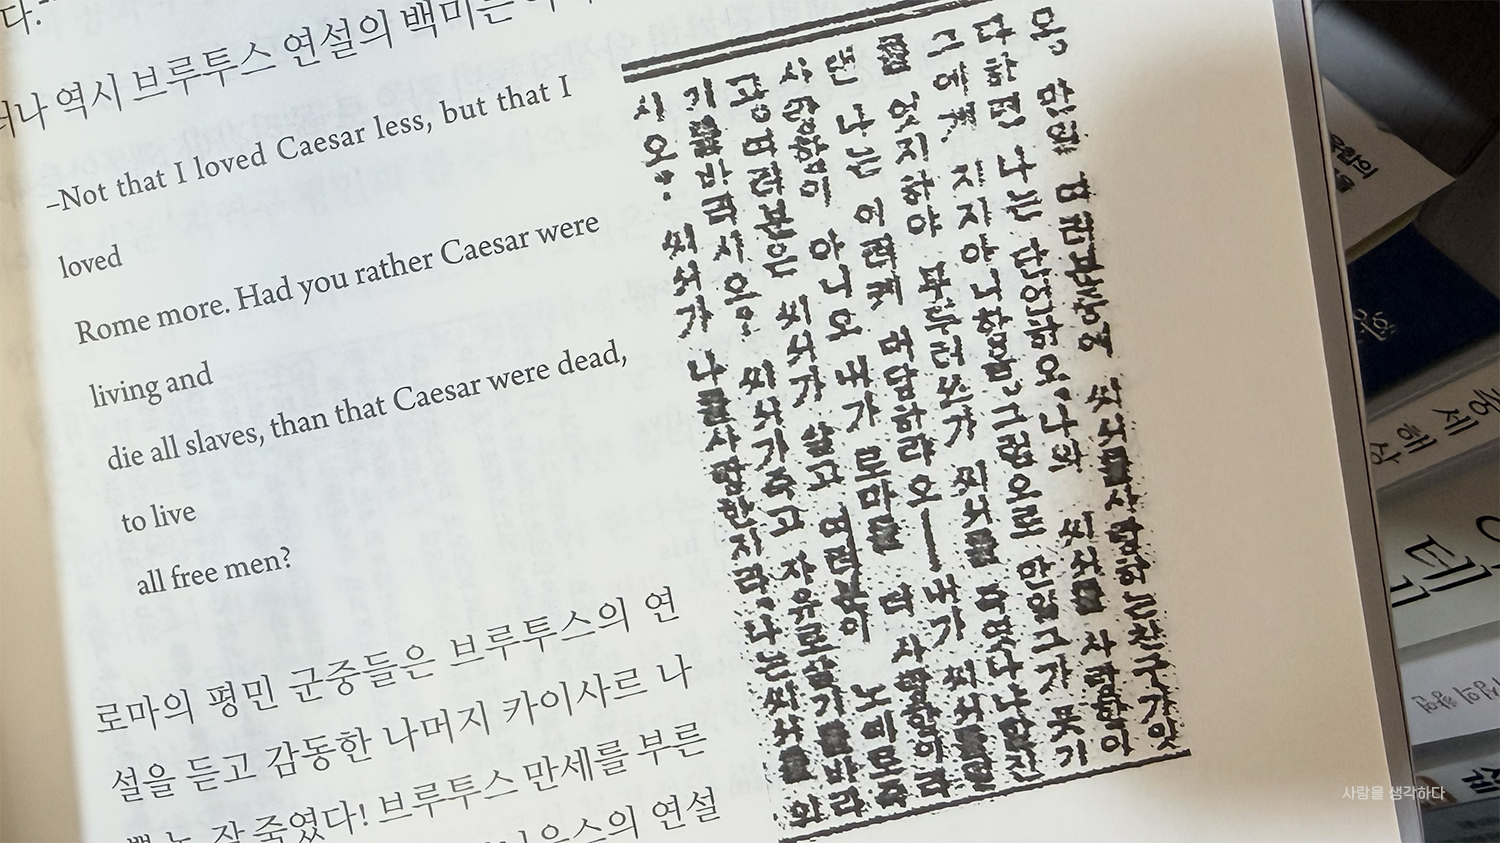 다.
역시 브루투스 연설의 백미는
–Not that I loved Caesar less, but that I
loved
Rome more. Had you rather Caesar were
living and
die all slaves, than that Caesar were dead,
to live
all free men?
로마의 평민 군중들은 브루투스의 연
설을 듣고 감동한 나머지 카이사르 나
잘 죽였다! 브루투스 만세를 부른
연설
오, 만일 여러분중에 씨서를사랑하는친구가잇
다하면 나는 단언하오, 나와 씨서를 사랑함이
그에게 지지아니함을, 그럼으로 만일그가 뭇기
를 엇지하야 부루터쓰가 씨서를 죽엿나냐할진
댄 나는 이러케 대답하랴오— 내가 씨서를
사랑함이 아니오 내가 로마를 더 사랑함이라
고, 여러분은 씨서가 살고 여러분이 노비로죽
기를바라시오? 씨서가죽고 자유로살기를바라
시오? 씨서가 나를사랑한지라, 나는씨서를
사람을 생각하다